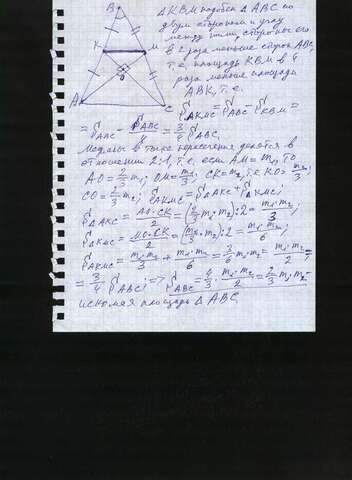 B
K
M
O
A
C
Δ KBM подобен Δ ABC по
двум сторонам и углу
между ними, стороны его
в 2 раза меньше сторон ABC,
т.е. площадь KBM в 4
раза меньше площади
ABK, т.е.
S AKMC = S ABC - S KBM =
= S ABC - S ABC/4 = 3/4 S ABC.
Медианы в точке пересечения делятся в
отношении 2:1, т.е. если AM = m₁, то
AO = 2/3 m₁; OM = m₁/3; CK = m₂, т.е. KO = m₂/3;
CO = 2/3 m₂; S AKMC = S ΔAKC + S ΔKMC;
S ΔAKC = AO·CK/2 = (2/3 m₁·m₂):2 = m₁·m₂/3;
S ΔKMC = MO·CK/2 = (m₁/3·m₂):2 = m₁·m₂/6;
S AKMC = m₁·m₂/3 + m₁·m₂/6 = 3/6 m₁·m₂ = m₁·m₂/2 =
= 3/4 S ABC; => S ABC = 4/3 · m₁·m₂/2 = 2/3 m₁·m₂ -
искомая площадь Δ ABC